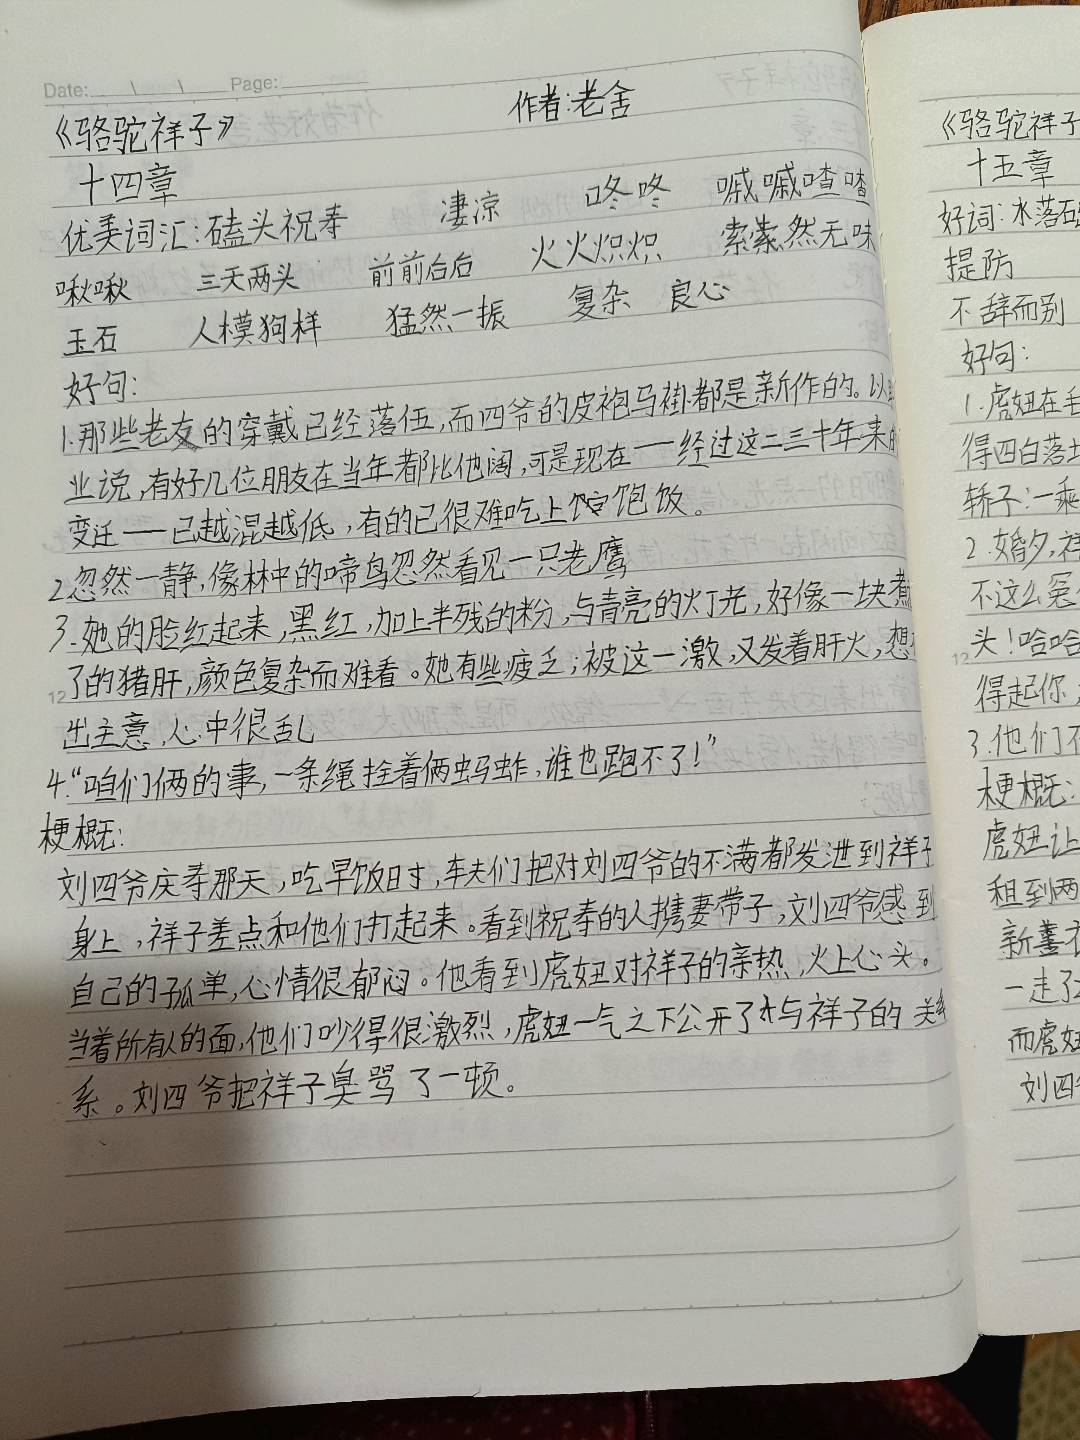 Date: Page:
《骆驼祥子》 作者:老舍
十四章
优美词汇:磕头祝寿 凄凉 咚咚 嘁嘁喳喳
啾啾 三天两头 前前后后 火火炽炽 索 然无味
玉石 人模狗样 猛然一振 复杂 良心
好句:
1.那些老友的穿戴已经落伍,而四爷的皮袍马褂都是新作的。以
业说,有好几位朋友在当年都比他阔,可是现在——经过这二三十年来的
变迁——已越混越低,有的已很难吃上饱饭。
2.忽然一静,像林中的啼鸟忽然看见一只老鹰
3.她的脸红起来,黑红,加上半残的粉,与青亮的灯光,好像一块煮
12
了的猪肝,颜色复杂而难看。她有些疲乏;被这一激,又发着肝火,想
出主意,心中很乱
4."咱们俩的事,一条绳拴着俩蚂蚱,谁也跑不了!"
梗概:
刘四爷庆寿那天,吃早饭时,车夫们把对刘四爷的不满都发泄到祥子
身上,祥子差点和他们打起来。看到祝寿的人携妻带子,刘四爷感到
自己的孤单,心情很郁闷。他看到虎妞对祥子的亲热,火上心头。
当着所有人的面,他们吵得很激烈,虎妞一气之下公开了与祥子的关
系。刘四爷把祥子臭骂了一顿。
《骆驼祥子
十五章
好词:水落石
提防
不辞而别
好句:
1.虎妞在毛
得四白落地
轿子:一乘
2.婚夕,祥
不这么冤
12
头!哈哈
得起你,
3.他们不
梗概:
虎妞让
租到两
新
一走了
而虎妞
刘四爷